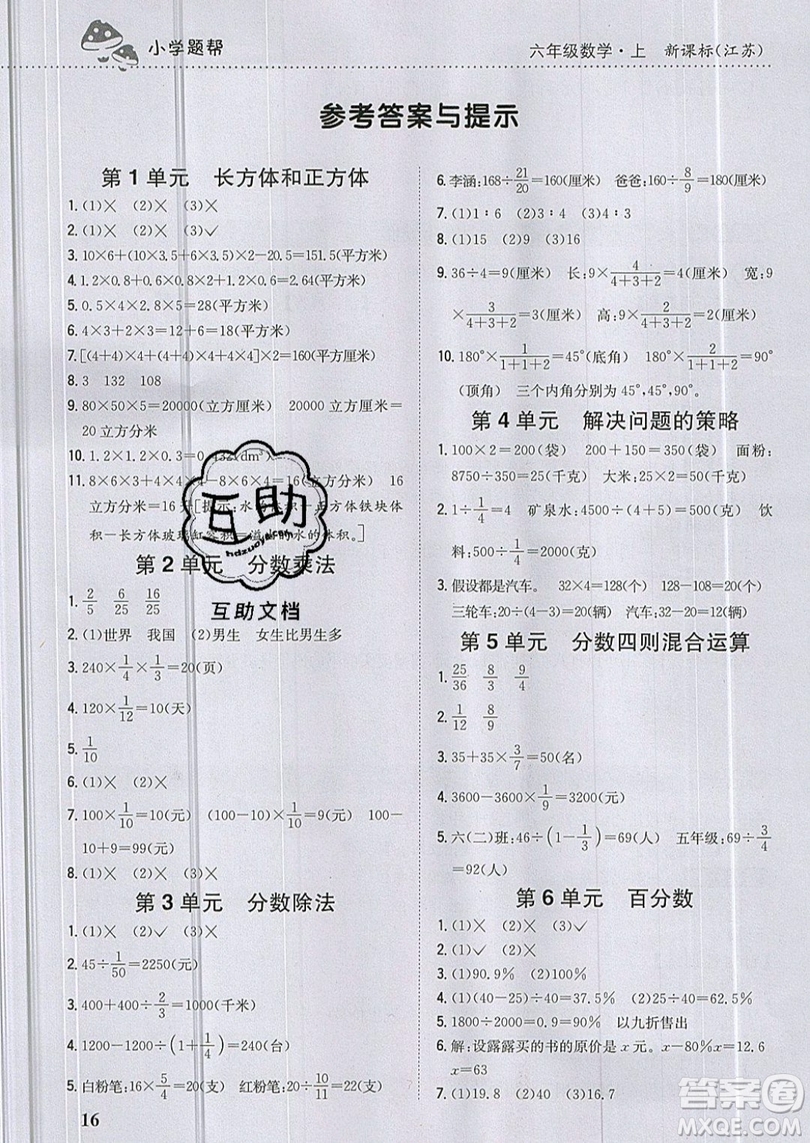 小学题帮
六年级数学·上 新课标(江苏)
参考答案与提示
第1单元 长方体和正方体
1. (1)× (2)× (3)×
2. (1)× (2)× (3)✓
3. 10×6+(10×3.5+6×3.5)×2-20.5=151.5(平方米)
4. 1.2×0.8+(1.2×0.6+0.8×0.6)×2=
5. 0.5×4×2×5=28(平方米)
6. 4×3+3×2=12+6=18(平方米)
7. [(4+4)×4+(4+4)×4+4×4]×2=160(平方厘米)
8. 3 132 108
9. 80×50×5=20000(立方厘米) 20000立方厘米=
20立方分米
10. 1.2×1.2×0.3=0.432(dm³)
11. 16
立方分米=16
第2单元 分数乘法
1. 2/5 6/25 16/25
2. (1)世界 我国 (2)男生 女生比男生多
3. 240×1/4×1/3=20(页)
4. 120×1/12=10(天)
5. 1/10
6. (1)× (2)×
7. 100×1/10=10(元) (100-10)×1/10=9(元) 100-
10+9=99(元)
8. (1)× (2)× (3)×
第3单元 分数除法
1. (1)× (2)× (3)×
2. 45÷1/50=2250(厘米)
3. 400+400÷2/3=1000(千米)
4. 1200-1200÷(1+1/4)=240(台)
5. 白粉笔:16×5/4=20(支) 红粉笔:20÷10/11=22(支)
16
6. 李涵:168÷21/20=160(厘米) 爸爸:160÷8/9=180(厘米)
7. (1)1∶6 (2)3∶4
8. (1)15 (2)9 (3)16
9. 36÷4=9(厘米) 长:9×4/(4+3+2)=4(厘米) 宽:9
×3/(4+3+2)=3(厘米) 高:9×2/(4+3+2)=2(厘米)
10. 180°×1/(1+1+2)=45°(底角) 180°×2/(1+1+2)=90°
(顶角) 三个内角分别为45°,45°,90°。
第4单元 解决问题的策略
1. 100×2=200(袋) 200+150=350(袋) 面粉:
8750÷350=25(千克) 大米:25×2=50(千克)
2. 1÷1/4=4 矿泉水:4500÷(4+5)=500(毫升) 饮
料:500÷1/4=2000(毫升)
3. 假设都是汽车。 32×4=128(个) 128-108=20(个)
三轮车:20÷(4-3)=20(辆) 汽车:32-20=12(辆)
第5单元 分数四则混合运算
1. 25/36 8/3 9/4
2. 1/12 8/9
3. 35+35×3/7=50(名)
4. 3600-3600×1/9=3200(元)
5. 六(二)班:46÷(1-1/3)=69(人) 五年级:69÷3/4
=92(人)
第6单元 百分数
1. (1)× (2)× (3)×
2. (1)✓ (2)✓ (3)×
3. (1)10.7% (2)90.3%
4. (1)(40-25)÷40=37.5% (2)25÷40=62.5%
5. 1800÷2000=0.9=90% 以九折售出
6. 解:设露露买的书的原价是x元。 x-80%x=12.6
x=63
7. (1)19.8 (2)40 (3)16.7
互助
hdzuoye.com
互助文档
答案圈
MXQE.COM